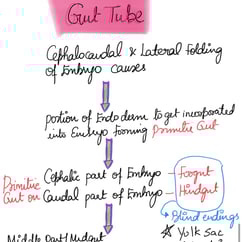 Gut Tube
Cephalocaudal & Lateral folding
of Embryo causes
portion of Endoderm to get incorporated
into Embryo forming Primitive Gut
Primitive Cephalic part of Embryo — Foregut
Gut on Caudal part of Embryo — Hindgut
Blind endings
Yolk Sac
Middle part/Midgut